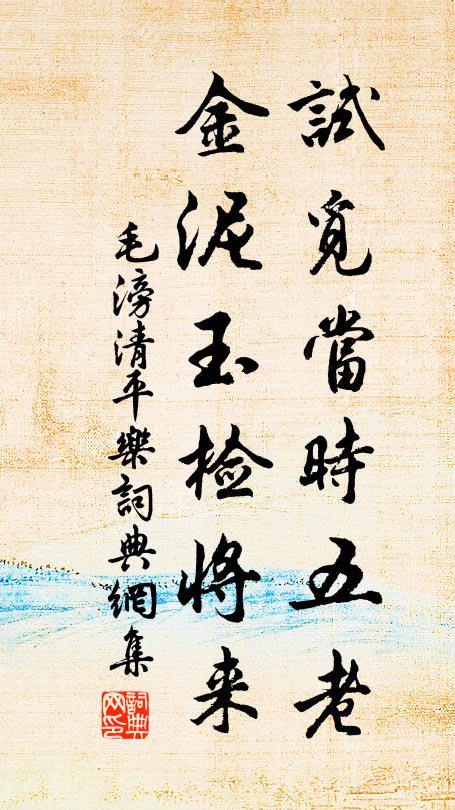 試覓當時五老
金泥玉檢將来
毛滂清平樂詞典網集
詞典網印